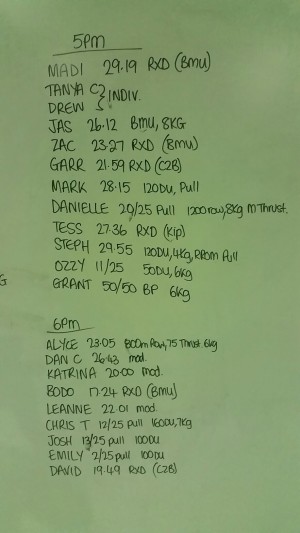 5pm
MADI 29.19 RXD (BMU)
TANYA C } INDIV.
DREW
JAS 26.12 BMU, 8KG
ZAC 23.27 RXD (BMU)
GARR 21.59 RXD (C2B)
MARK 28.15 120DU, Pull
DANIELLE 20/25 Pull 1200row, 8kg M Thrust.
TESS 27.36 RXD (Kip)
STEPH 29.55 120DU, 4kg, Ribbon Pull
OZZY 11/25 50DU, 6kg
GRANT 50/50 BP 6kg
G
6pm
ALYCE 23.05 800m Row, 75 Thrust 6kg
DAN C 26.43 mod.
KATRINA 20.00 mod.
BODO 17.24 RXD (BMU)
LEANNE 22.01 mod.
CHRIS T 12/25 pull 160DU, 7kg
JOSH 13/25 pull 100DU
EMILY 2/25 pull 100DU
DAVID 19.49 RXD (C2B)